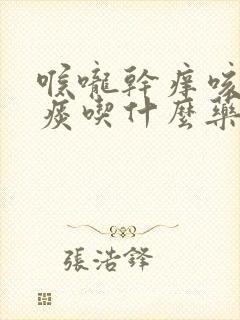 喉嚨幹癢咳
痰喫什麼藥
張浩鋒